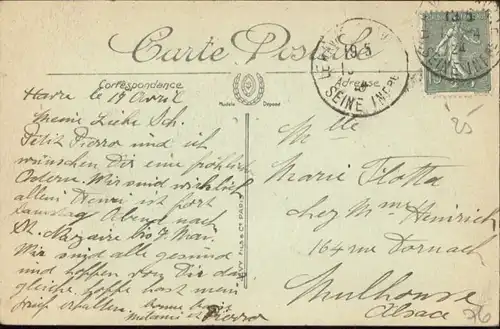 Carte Postale
Correspondance
Adresse
Modèle Déposé
LE HAVRE
19 5
SEINE INFRE
Havre le 19 Avril
Meine Liebe Sch.
Petit Pierro und ich
wünschen Dir eine fröhliche
Ostern. Wir sind wirklich
allein Henri ist fort
Samstag Abend nach
St. Nazaire bis 7 Mai.
Wir sind alle gesund
und hoffen von Dir das
gleiche hoffe bast mein
Brief erhalten. bonne baisers
Melanie et Pierro
LEVY FILS & Cie PARIS
Mlle
Marie Flotta
chez Mme Heinrich
164 rue Dornach
Mulhouse
Alsace
25